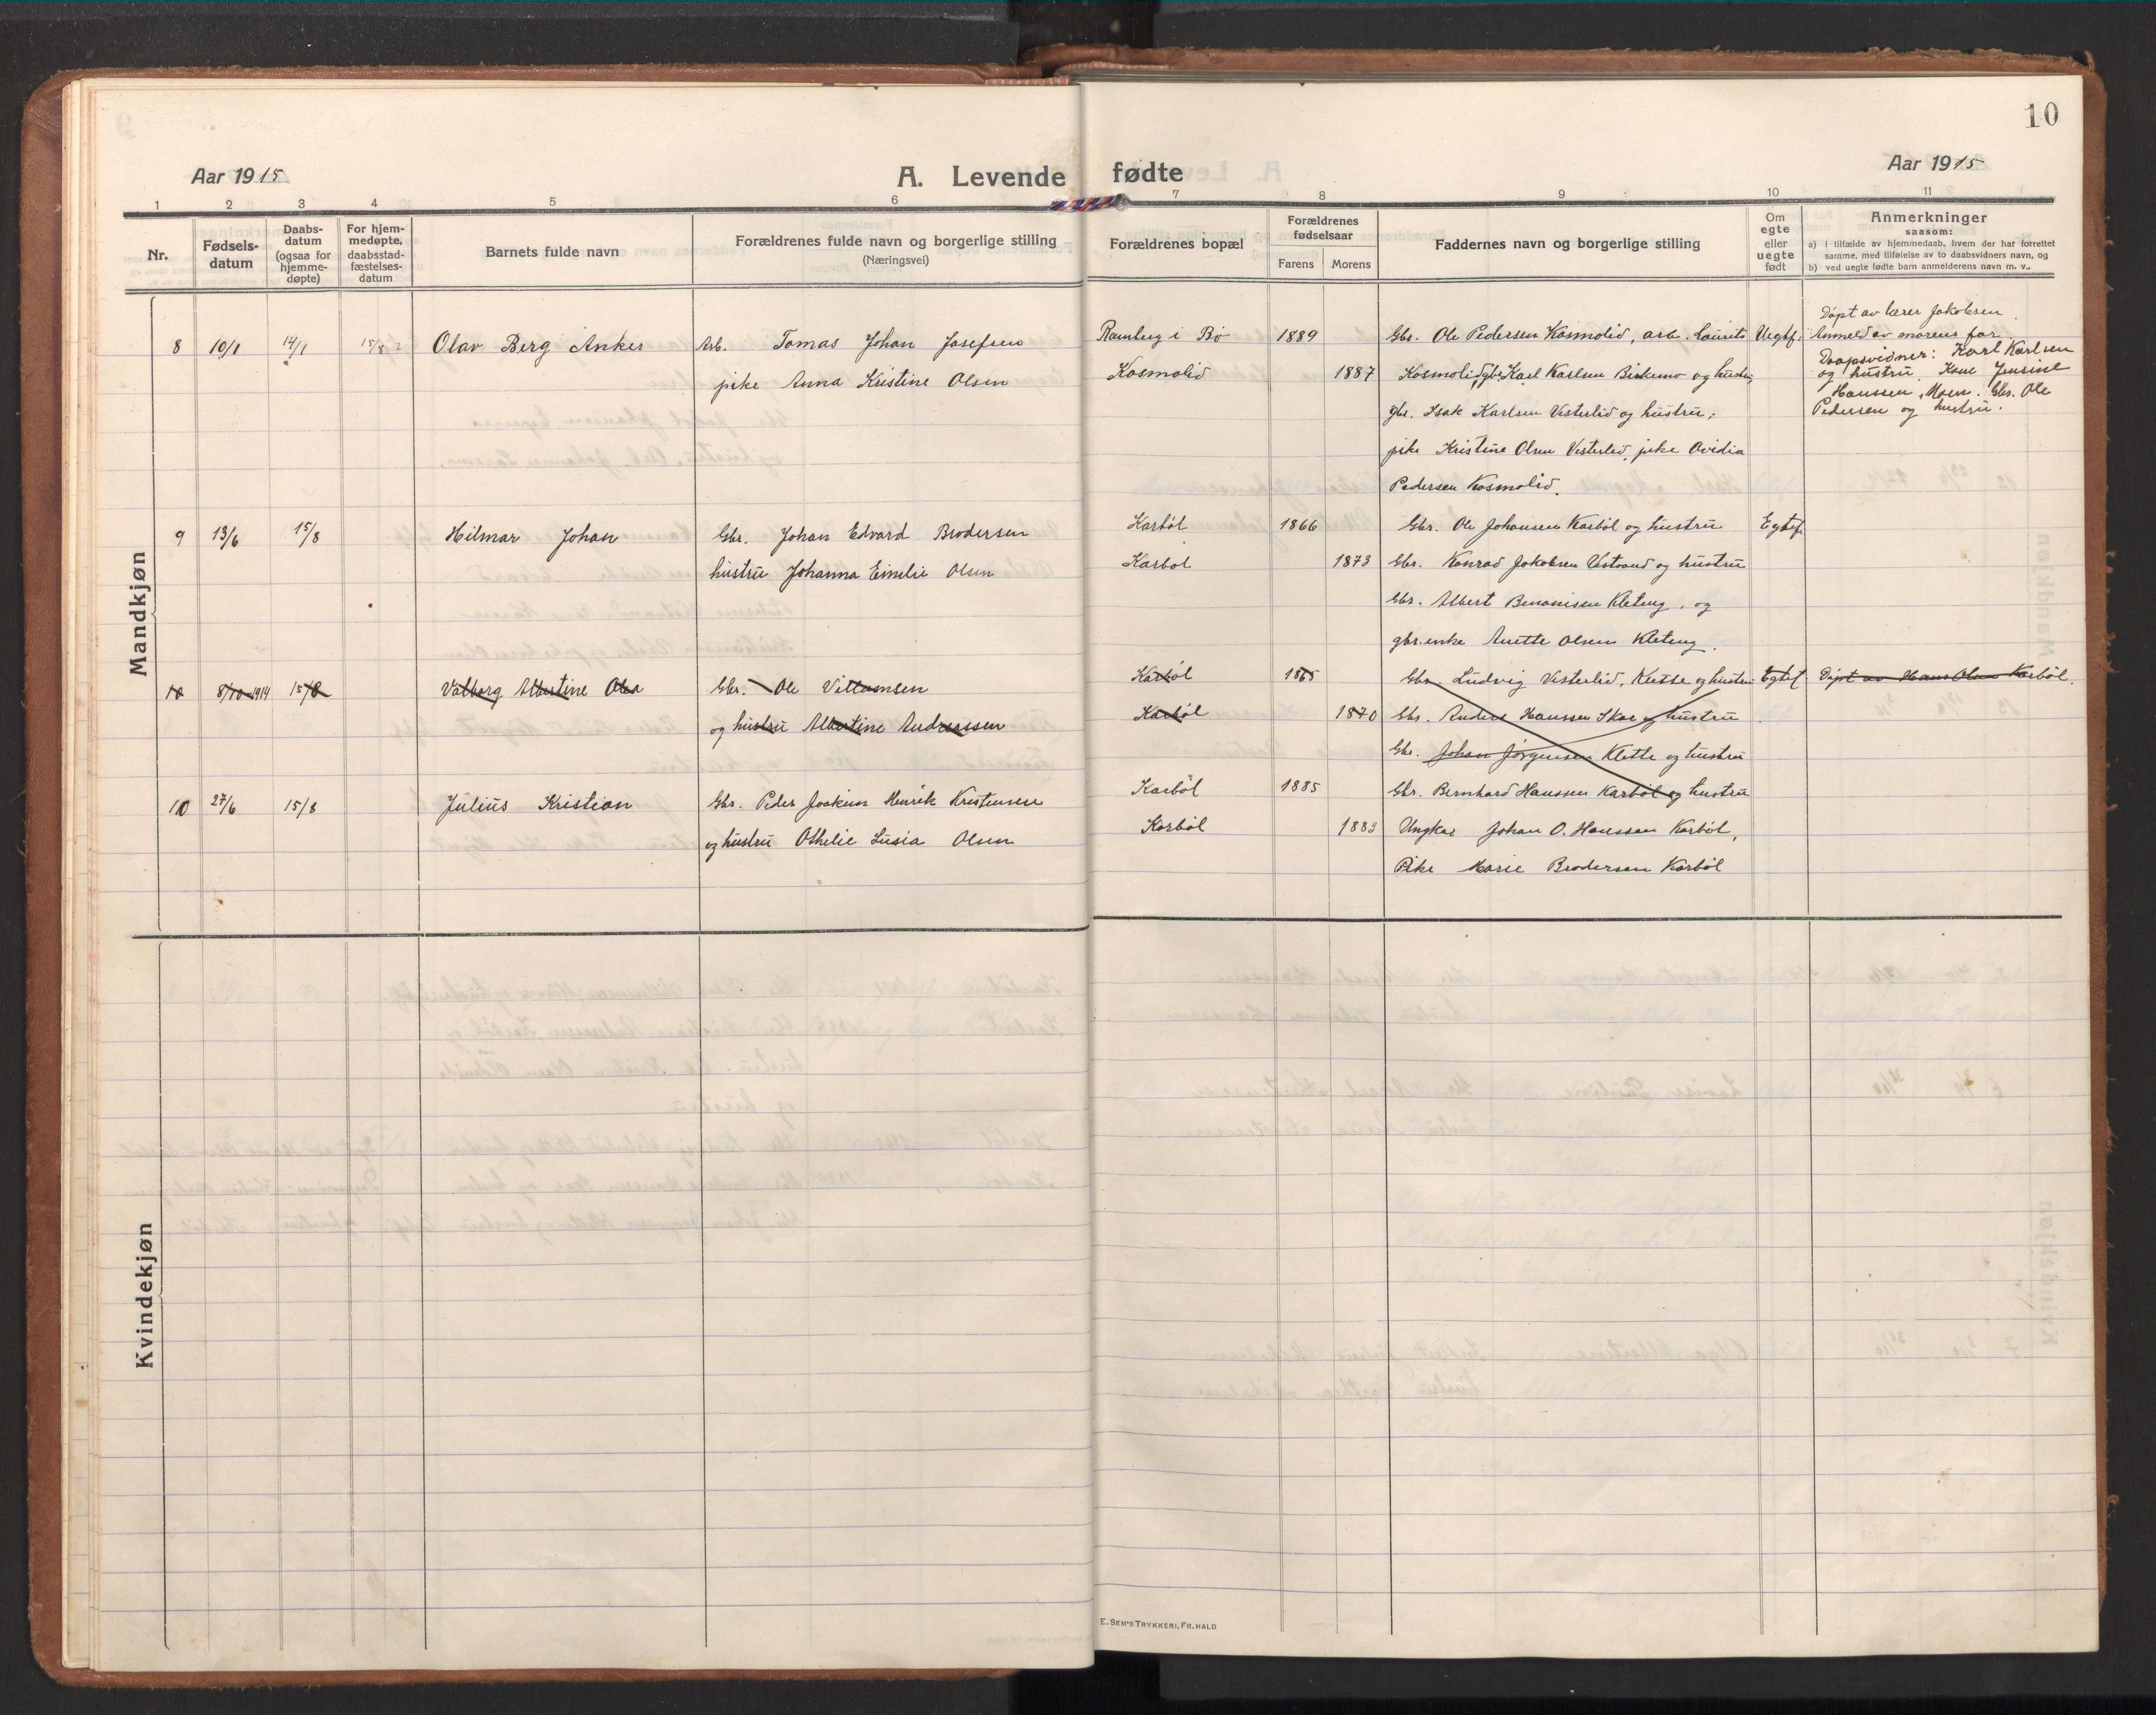 10
Aar 1915
A. Levende fødte
Aar 1915
1 2 3 4 5 6 7 8 9 10 11
Nr.
Fødsels-
datum
Daabs-
datum
(ogsaa for
hjemme-
døpte)
For hjem-
medøpte,
daabsstad-
fæstelses-
datum
Barnets fulde navn
Forældrenes fulde navn og borgerlige stilling
(Næringsvei)
Forældrenes bopæl
Forældrenes
fødselsaar
Farens Morens
Faddernes navn og borgerlige stilling
Om
egte
eller
uegte
født
Anmerkninger
saasom:
a) i tilfælde av hjemmedaab, hvem der har forrettet
samme, med tilføielse av to daabsvidners navn, og
b) ved uegte fødte barn anmelderens navn m. v..
Mandkjøn
8 10/1 14/1 15/8 Olav Berg Anker Arb. Tomas Johan Josefsen Ramberg i Bø 1889 Gbr. Ole Pedersen Kosmolid, arb. Laurits Uegtf. Døpt av lærer Jakobsen.
Anmeld av morens far.
pike Anna Kristine Olsen Kosmolid 1887 Kosmolid, gbr. Karl Karlsen Birkemo og hustru, Daapsvidner: Karl Karlsen
og hustru. Kone Jensine
gbr. Isak Karlsen Vesterlid og hustru; Hanssen, Moen. Gbr. Ole
Pedersen og hustru.
pike Kristine Olsen Vesterlid, pike Ovidia
Pedersen Kosmolid.
9 13/6 15/8 Hilmar Johan Gbr. Johan Edvard Brodersen Karbøl 1866 Gbr. Ole Johansen Karbøl og hustru Egtef.
hustru Johanna Emelie Olsen Karbøl 1873 Gbr. Konrad Jakobsen Vestvand og hustru
Gbr. Albert Benonisen Kleteng, og
gbr.enke Anette Olsen Kleteng.
10 8/10 1914 15/8 Valborg Albertine Olea Gbr. Ole Villumsen Karbøl 1865 Gbr. Ludvig Vesterlid, Klette og hustru Egtef. Døpt av Hans Olsen Karbøl.
og hustru Albertine Andreassen Karbøl 1870 Gbr. Anders Hanssen Skar og hustru
Gbr. Johan Jørgensen Klette og hustru
10 27/6 15/8 Julius Kristian Gbr. Peder Joakim Henrik Kristensen Karbøl 1885 Gbr. Bernhard Hanssen Karbøl og hustru
og hustru Othelie Lusia Olsen Karbøl 1883 Ungkar Johan O. Hanssen Karbøl,
Pike Marie Brodersen Karbøl
Kvindekjøn
E. SEM'S TRYKKERI, FR.HALD